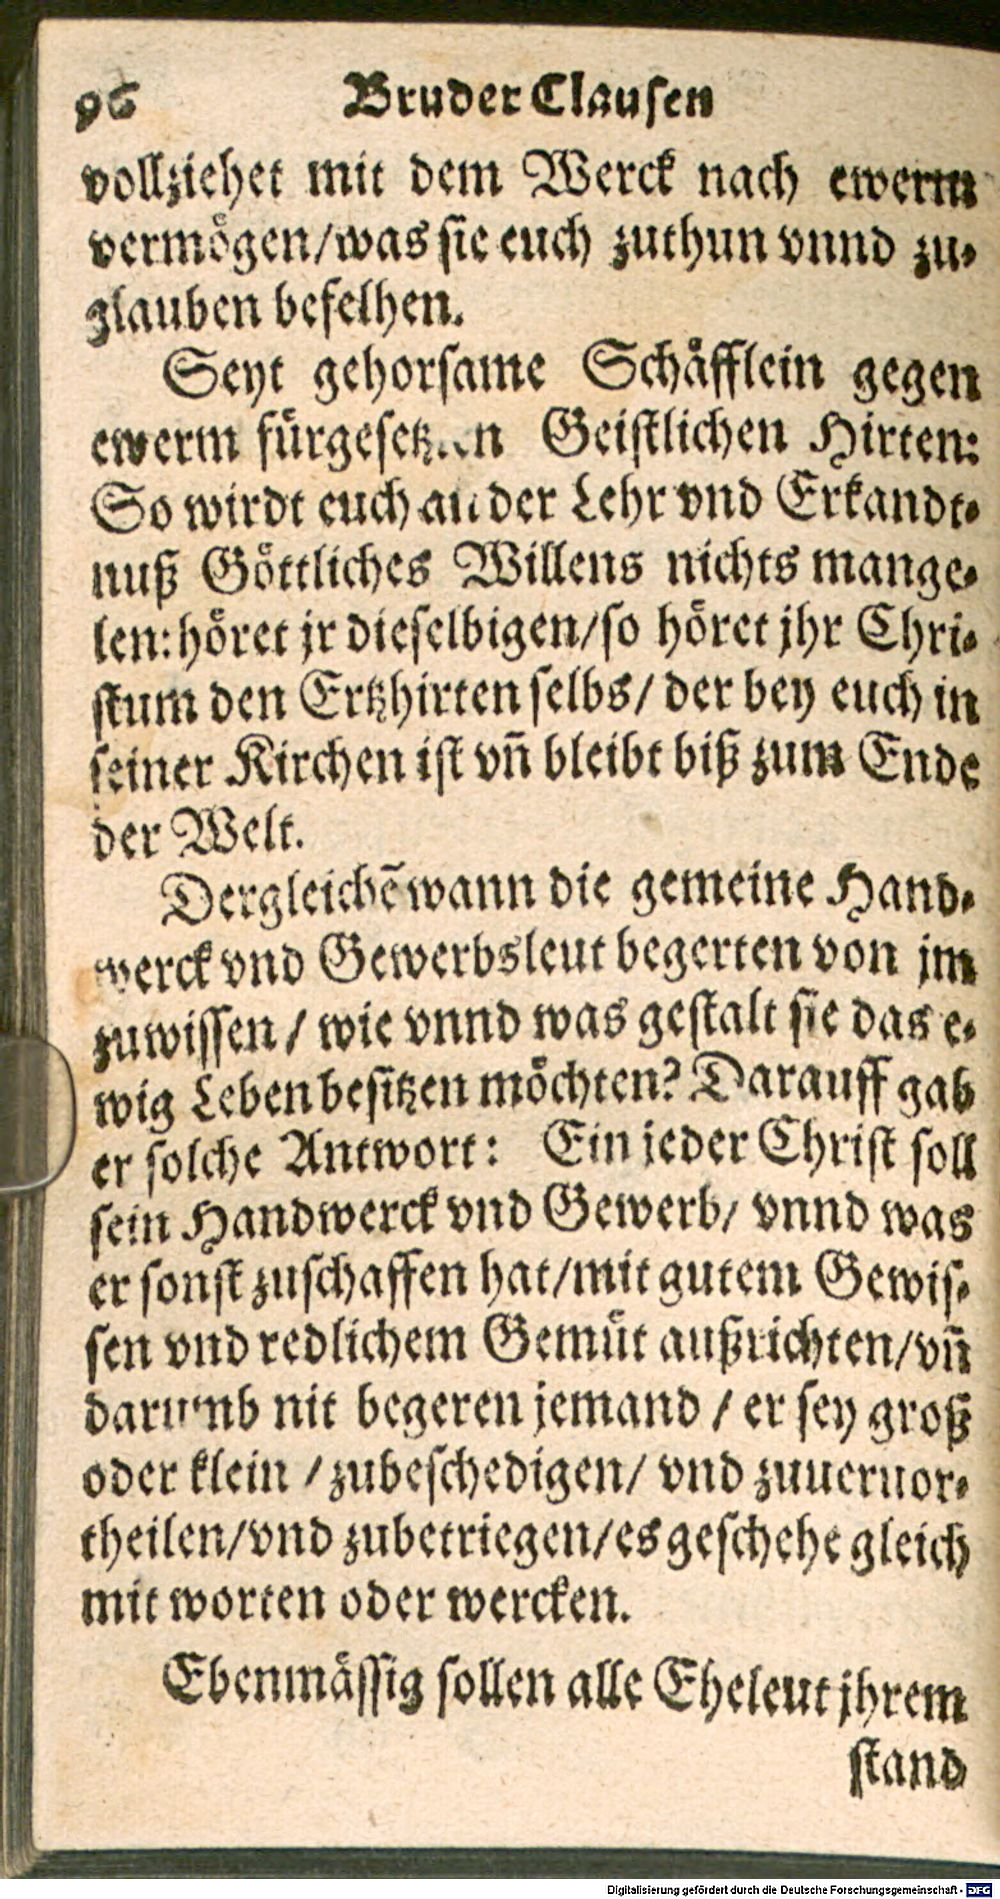 96 Bruder Clausen
vollziehet mit dem Werck nach ewerm
vermögen/was sie euch zuthun vnnd zu-
glauben befelhen.
Seyt gehorsame Schäfflein gegen
ewerm fürgesetzten Geistlichen Hirten:
So wirdt euch an der Lehr vnd Erkandt-
nuß Göttliches Willens nichts mange-
len: höret jr dieselbigen/so höret jhr Chri-
stum den Ertzhirten selbs/ der bey euch in
seiner Kirchen ist vñ bleibt biß zum Ende
der Welt.
Dergleichẽ wann die gemeine Hand-
werck vnd Gewerbsleut begerten von jm
zuwissen / wie vnnd was gestalt sie das e-
wig Leben besitzen möchten? Darauff gab
er solche Antwort: Ein jeder Christ soll
sein Handwerck vnd Gewerb/ vnnd was
er sonst zuschaffen hat/mit gutem Gewis-
sen vnd redlichem Gemüt außrichten/vñ
darumb nit begeren jemand / er sey groß
oder klein / zubeschedigen/ vnd zuueruor-
theilen/vnd zubetriegen/es geschehe gleich
mit worten oder wercken.
Ebenmässig sollen alle Eheleut jhrem
stand
Digitalisierung gefördert durch die Deutsche Forschungsgemeinschaft - DFG